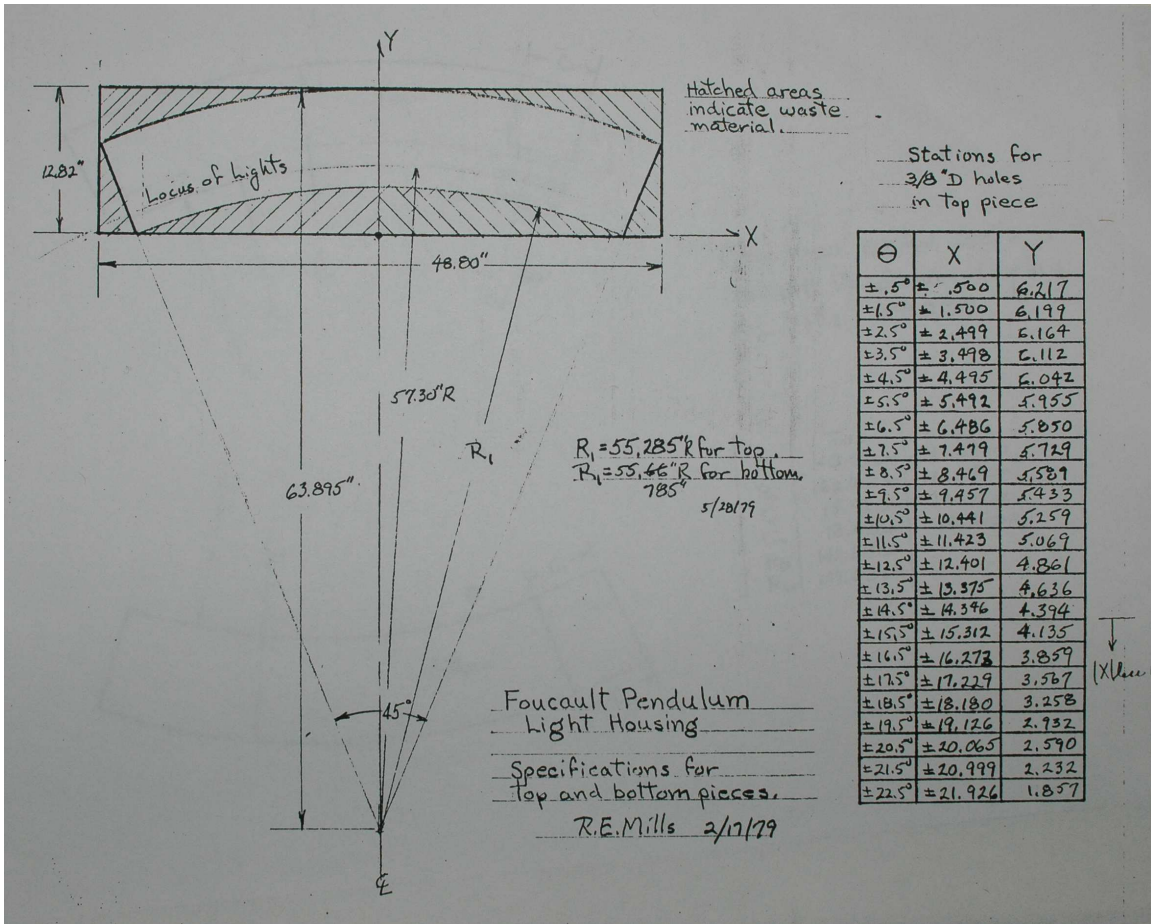 Y
Hatched areas
indicate waste
material.
12.82"
Locus of Lights
X
48.80"
Stations for
3/8"D holes
in top piece
57.30"R
R₁
63.895"
R₁=55.285"R for top.
R₁=55. "R for bottom.
785"
5/28/79
45°
Foucault Pendulum
Light Housing
Specifications for
top and bottom pieces.
R.E.Mills 2/17/79
℄
θ X Y
±.5° ± .500 6.217
±1.5° ± 1.500 6.199
±2.5° ± 2.499 6.164
±3.5° ± 3.498 6.112
±4.5° ± 4.495 6.042
±5.5° ± 5.492 5.955
±6.5° ± 6.486 5.850
±7.5° ± 7.479 5.729
±8.5° ± 8.469 5.589
±9.5° ± 9.457 5.433
±10.5° ± 10.441 5.259
±11.5° ± 11.423 5.069
±12.5° ± 12.401 4.861
±13.5° ± 13.375 4.636
±14.5° ± 14.346 4.394
±15.5° ± 15.312 4.135
±16.5° ± 16.273 3.859
±17.5° ± 17.229 3.567
±18.5° ± 18.180 3.258
±19.5° ± 19.126 2.932
±20.5° ± 20.065 2.590
±21.5° ± 20.999 2.232
±22.5° ± 21.926 1.857